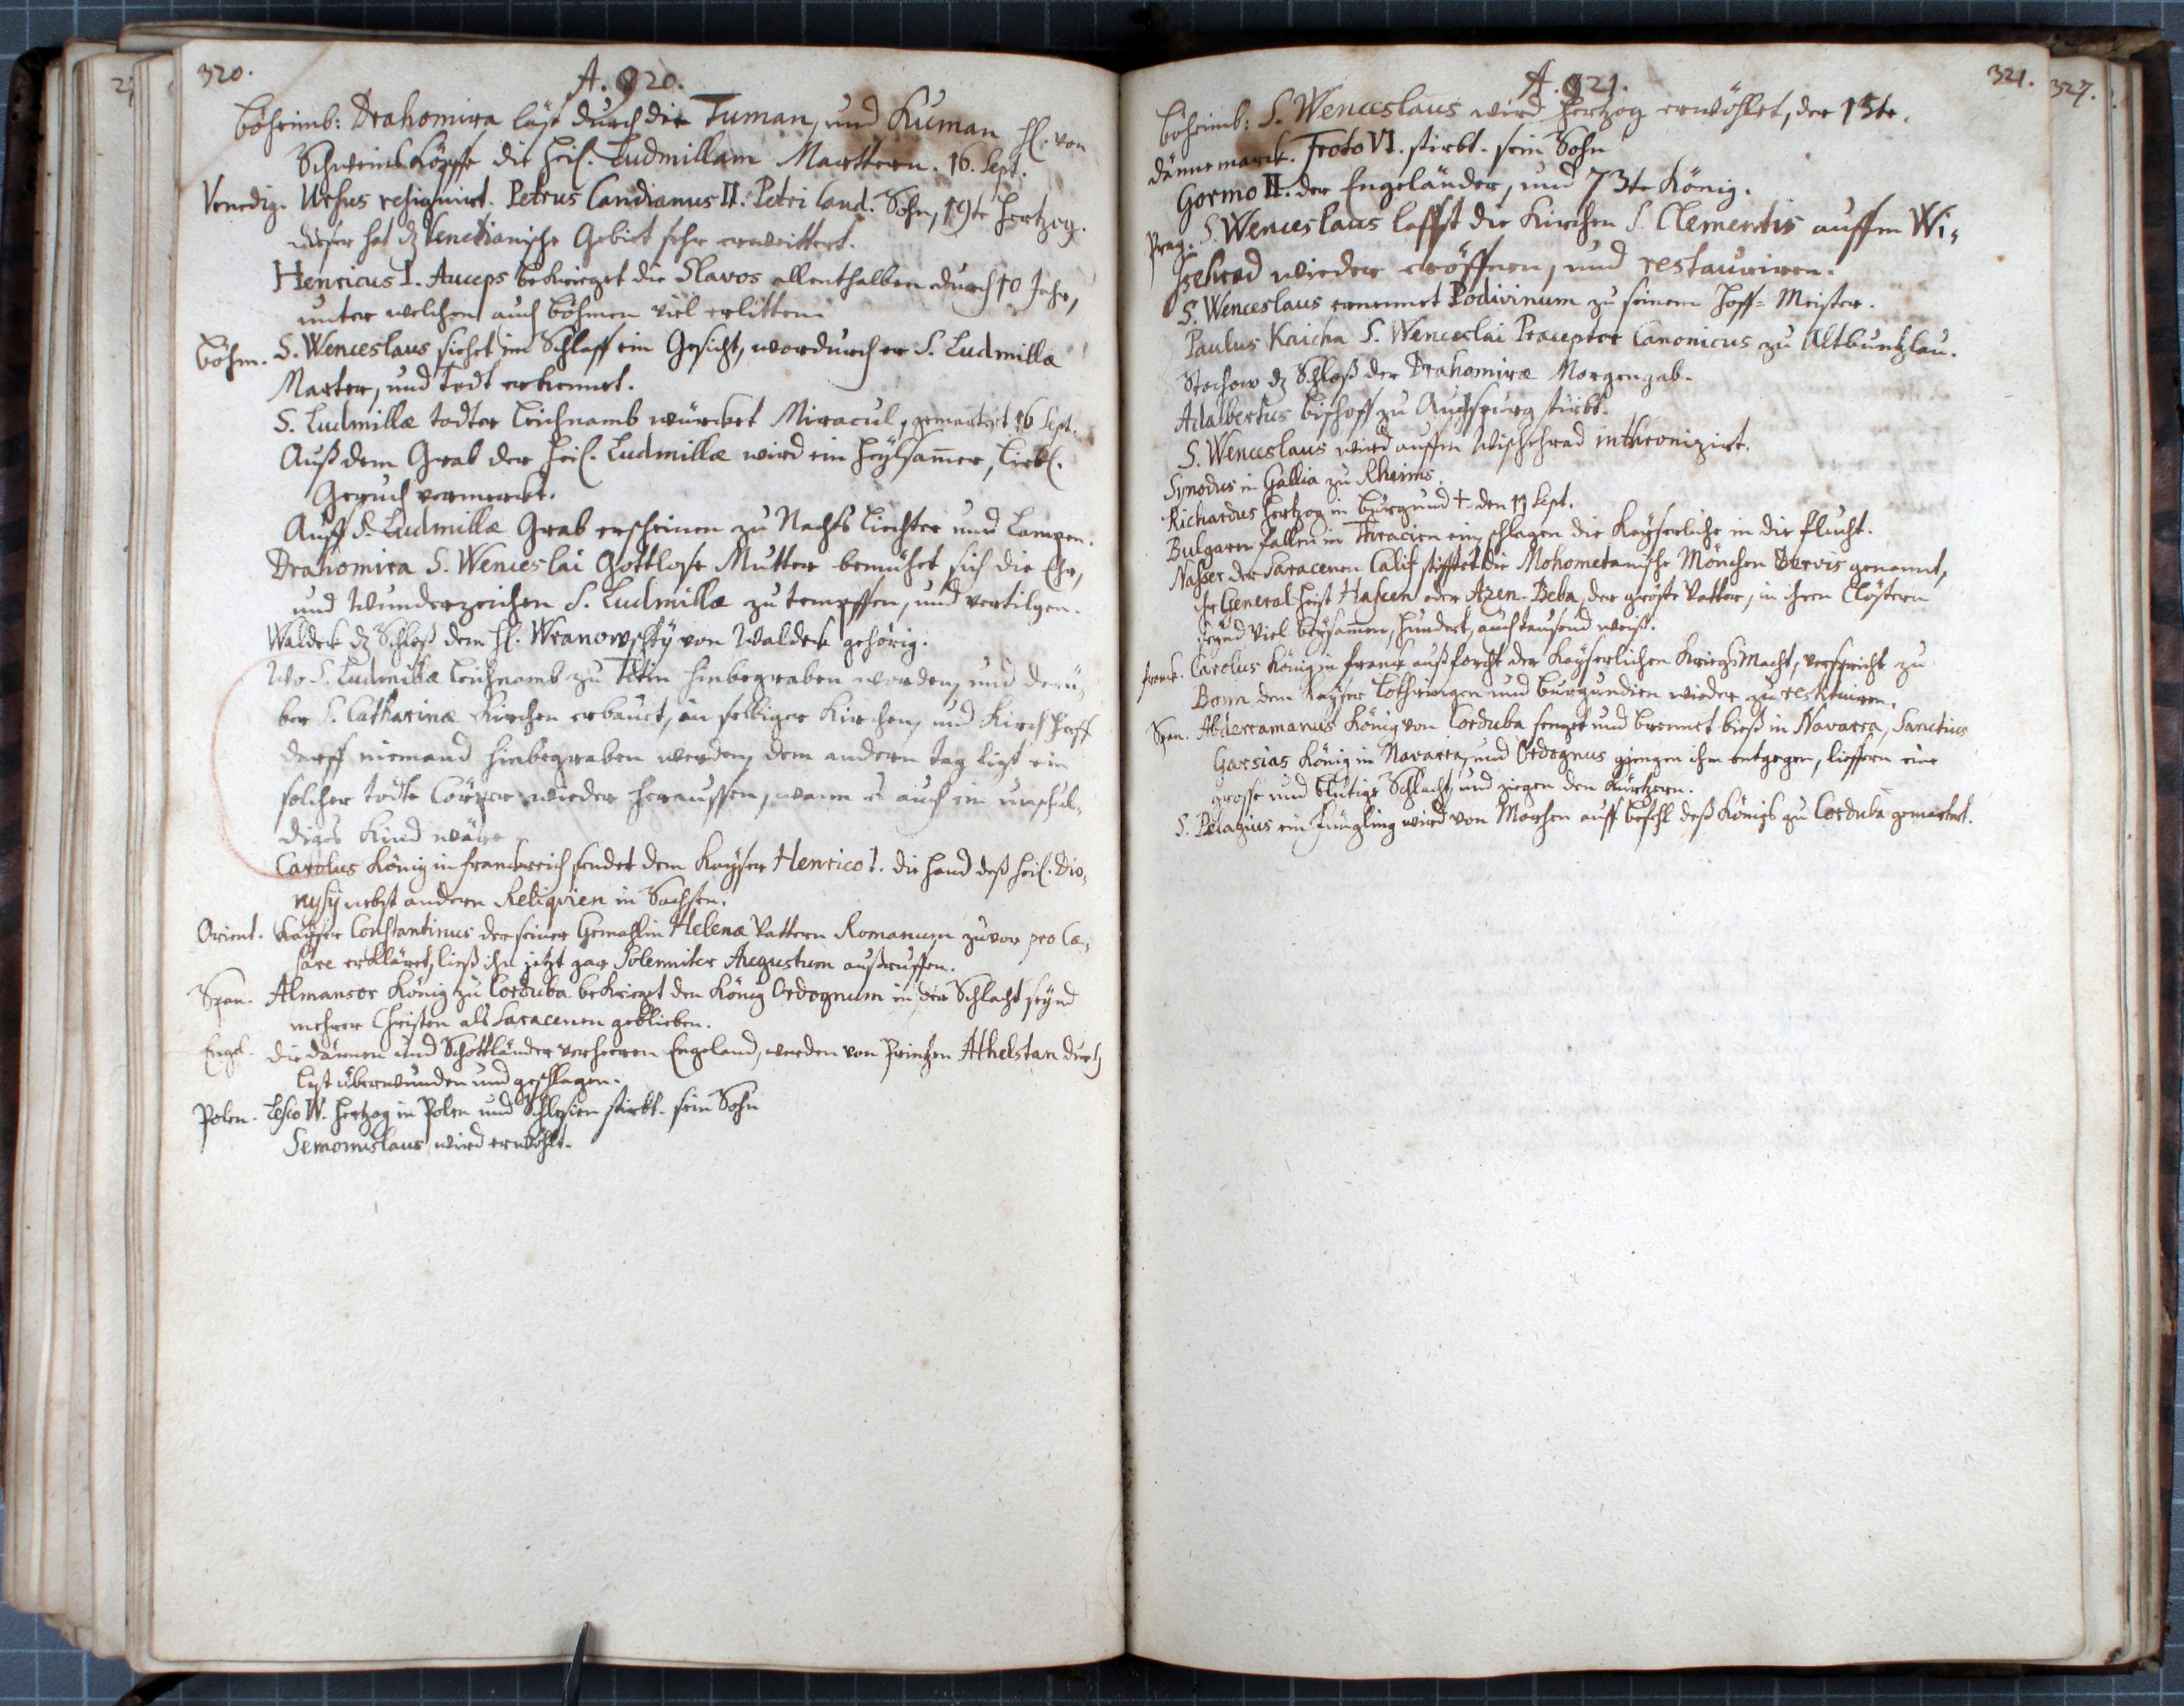 320.
A. 920.
Böheimb: Drahomira läst durch die Tuman, und Kuman H. von
Schweinsköpff die Heil. Ludmillam Marttern. 16. Sept.
Venedig. Ursus resignirt. Petrus Candianus II. Petri Cand. Sohn, 19te Hertzog.
dieser hat dz Venetianische Gebiet sehr erweittert.
Henricus I. Auceps bekrieget die Slavos allenthalben durch 10 Jahr,
unter welchen auch Böhmen viel erlitten.
Böhm. S. Wenceslaus siehet im Schlaff ein Gesicht, wordurch er S. Ludmillæ
Marter, und Todt erkennet.
S. Ludmillæ todter Leichnamb würcket Miracul, gemartert 16 Sept.
Auß dem Grab der Heil. Ludmillæ wird ein Heylsamer, Liebl.
Geruch vermerckt.
Auff S. Ludmillæ Grab erscheinen zu Nachts Liechter und Lampen.
Drahomira S. Wenceslai Gottlose Mutter bemühet sich die Ehr,
und Wunderzeichen S. Ludmillæ zu tempffen, und vertilgen.
Waldek dz Schloß dem H. Wranowsský von Waldek gehörig.
Wo S. Ludmillæ Leichnamb zu Tetin hinbegraben worden, und derü-
ber S. Catharinæ Kirchen erbauet, in selbiger Kirchen, und Kirchhoff
darff niemand hinbegraben werden, dem andern tag ligt ein
solcher todte Cörper wieder heraussen, wann es auch ein unschul-
diges Kind wäre
Carolus König in Franckreich sendet dem Kayser Henrico I. die Hand deß Heil. Dio-
nysy nebst andern Reliqvien in Sachsen.
Orient. Kayser Constantinus der seiner Gemahlin Helenæ Vattern Romanum zuvor pro Cæ-
sare erkläret, ließ ihn jetzt gar Solenniter Augustum außruffen.
Span. Almansor König zu Corduba bekrieget den König Ordognum in der Schlacht seynd
mehrer Christen als Saracenen geblieben.
Engel. Die Dännen und Schottländer verheeren Engeland, werden von Printzen Athelstan durch
List überwunden und geschlagen.
Polen. Lesco IV. Hertzog in Polen und Schlesien stirbt. sein Sohn
Semomislaus wird erwöhlt.
A. 921.
321.
327.
Böheimb: S. Wenceslaus wird Hertzog erwöhlet, der 13te.
Dännemarck. Froto VI. stirbt. sein Sohn
Gormo II. der Engeländer, und 73te König.
Prag. S. Wenceslaus lasst die Kirchen S. Clementis auffm Wi-
ssehrad wieder eröffnen, und restauriren.
S. Wenceslaus ernennet Podivinum zu seinem Hoff-Meister.
Paulus Kaicha S. Wenceslai Præceptor Canonicus zu Altbuntzlau.
Stochow dz Schloß der Drahomiræ Morgengab.
Adalbertus Bischoff zu Augspurg stirbt.
S. Wenceslaus wird auffm Wischehrad inthronizirt.
Synodus in Gallia zu Rheims.
Richardus Hertzog in Burgund † den 11 Sept.
Bulgaren fallen in Thracien ein, schlagen die Kayserliche in die Flucht.
Nasser der Saracenen Calif stifftet die Mohometanische Mönchen Dervis genannt,
ihr General heist Hascen oder Azen-Beba, der gröste Vatter, in ihren Clöstern
seynd viel beysamen, hundert, auch tausend weiß.
Franck. Carolus König in Franck. auß forcht der Kayserlichen Kriegs Macht, verspricht zu
Bonn dem Kayser Lothringen und Burgundien wieder zu restituiren.
Span. Abderramanus König von Corduba senget und brennet bieß in Navarra, Sanctius
Garsias König in Navarra, und Ordognus giengen ihm entgegen, lieffern eine
grosse und blutige Schlacht, und ziegen den Kürtzern.
S. Pelagius ein Jüngling wird von Mohren auff Befehl deß Königs zu Corduba gemartert.